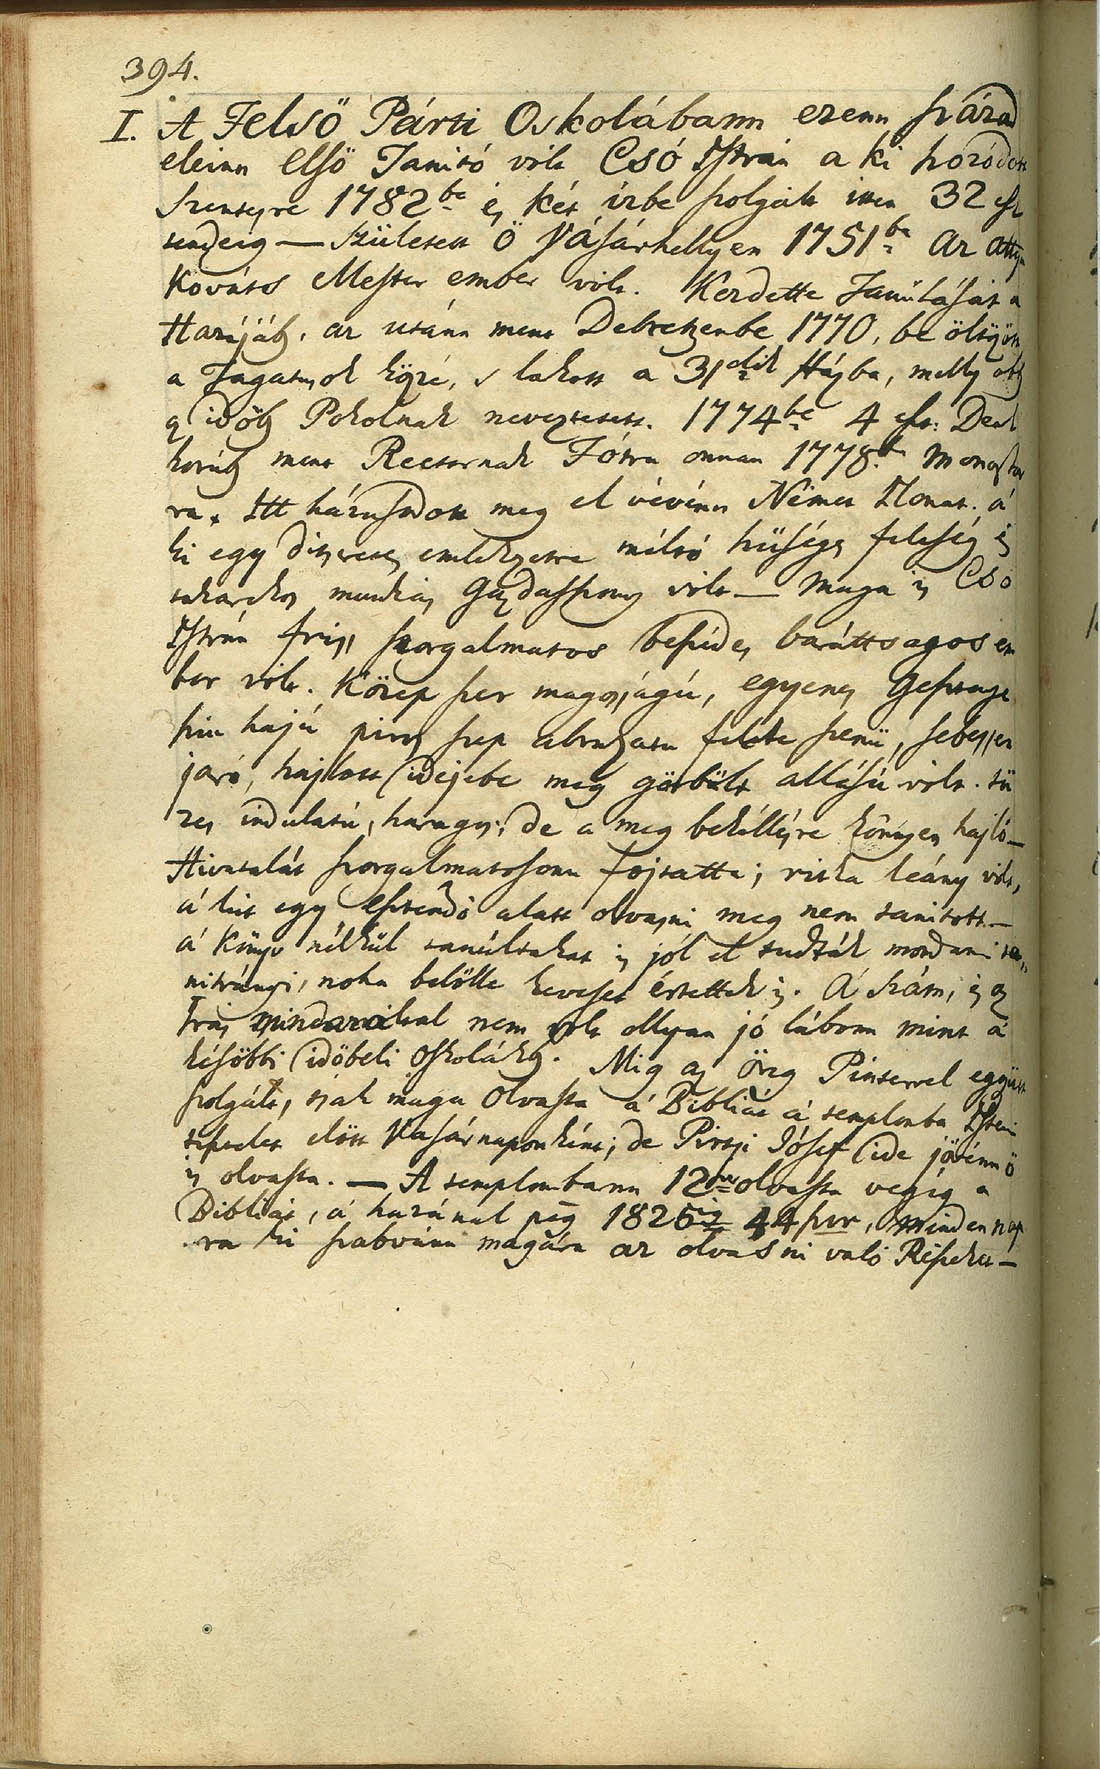 394.
I. A Felső Párti Oskolábann ezenn század
eleinn első Tanitó vólt Csó István a ki hozódott
Szentesre 1782be és két izbe szolgált itten 32 esz
tendeig — Született Ő Vásárhellyen 1751be Az Attya
Kováts Mester ember vólt. Kezdette Tanúlását a
Hazájáb. az utánn ment Debretzenbe 1770. be öltözött
a Togatusok közé, s lakott a 31dik Házba, melly
időb Pokolnak neveztetett. 1774be 4 Eszt: Deák
koráb ment Rectornak Tótra onnan 1778b Monostor
ra. Itt házasodott meg el vévénn Német Ilonat. á
ki egy ditséretes emlékezetre méltó hűséges feleség és
takarékos munkás Gazdasszony vólt — Maga is Csó
István friss szorgalmatos beszédes baráttsagos em
ber vólt. Közép szer magosságú, egyenes
szin hajú piros szep abrázatu fekete szemü, sebessen
járó, hajlott idejebe meg görbült allású vólt. tü
zes indulatú, haragos; de a meg békéllésre könnyen hajló —
Hivatalát szorgalmatosonn fojtatta; ritka leány vólt,
á kit egy esztendő alatt olvasni meg nem tanitott —
á Könyv nélkül tanúltakat is jól el tudták mondani ta„
nitványi, noha belölle keveset értettek is. Á Szám, és az
Irás mindazáltal nem vólt ollyan jó lábonn mint á
késöbbi időbeli Oskolákb. Mig az Öreg Pinterrel együtt
szolgált, tsak maga Olvasta á Bibliát á templomba Isteni
tisztelet elött Vasárnaponként; de Pirtsi Jósef ide jövénn ő
is olvasta. — A templombann 12szer olvasta végig a
Bibliát, á házánál pég 1826ig 44szer, Minden nap
ra ki szabvánn magára az olvasni való Részeket —